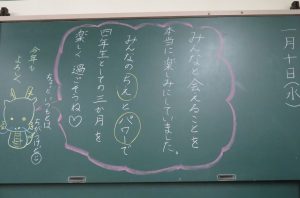 一月十日(水)
みんなと会えることを
本当に楽しみにしていました。
みんなのちえとパワーで
四年生としての三か月を
楽しく過ごそうね♡
今年も
よろしく
ちょっといつもとは